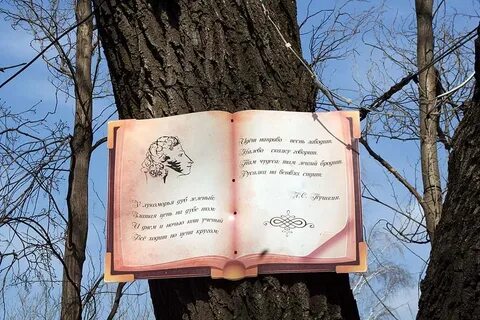 У лукоморья дуб зелёный;
Златая цепь на дубе том:
И днём и ночью кот учёный
Всё ходит по цепи кругом;
Идёт направо - песнь заводит,
Налево - сказку говорит.
Там чудеса: там леший бродит,
Русалка на ветвях сидит.
А.С. Пушкин.